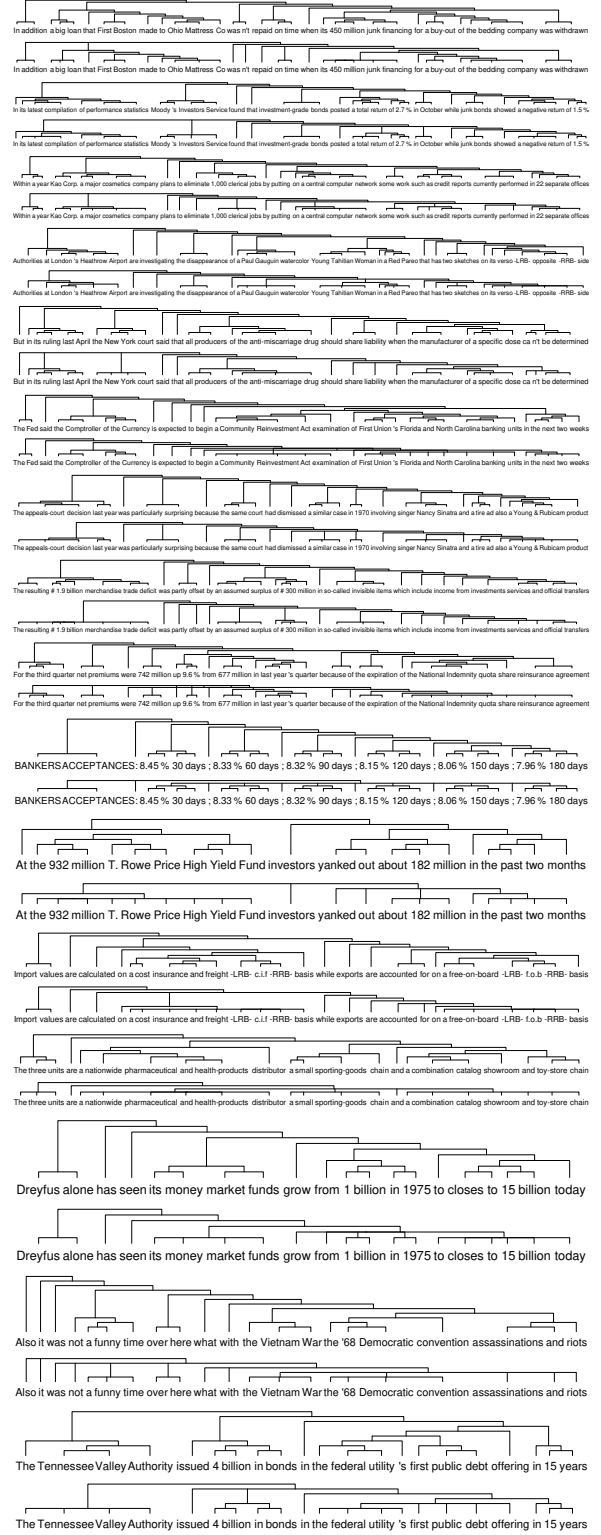 In addition a big loan that First Boston made to Ohio Mattress Co was n't repaid on time when its 450 million junk financing for a buy-out of the bedding company was withdrawn
In addition a big loan that First Boston made to Ohio Mattress Co was n't repaid on time when its 450 million junk financing for a buy-out of the bedding company was withdrawn
In its latest compilation of performance statistics Moody 's Investors Service found that investment-grade bonds posted a total return of 2.7 % in October while junk bonds showed a negative return of 1.5 %
In its latest compilation of performance statistics Moody 's Investors Service found that investment-grade bonds posted a total return of 2.7 % in October while junk bonds showed a negative return of 1.5 %
Within a year Kao Corp. a major cosmetics company plans to eliminate 1,000 clerical jobs by putting on a central computer network some work such as credit reports currently performed in 22 separate offices
Within a year Kao Corp. a major cosmetics company plans to eliminate 1,000 clerical jobs by putting on a central computer network some work such as credit reports currently performed in 22 separate offices
Authorities at London 's Heathrow Airport are investigating the disappearance of a Paul Gauguin watercolor Young Tahitian Woman in a Red Pareo that has two sketches on its verso -LRB- opposite -RRB- side
Authorities at London 's Heathrow Airport are investigating the disappearance of a Paul Gauguin watercolor Young Tahitian Woman in a Red Pareo that has two sketches on its verso -LRB- opposite -RRB- side
But in its ruling last April the New York court said that all producers of the anti-miscarriage drug should share liability when the manufacturer of a specific dose ca n't be determined
But in its ruling last April the New York court said that all producers of the anti-miscarriage drug should share liability when the manufacturer of a specific dose ca n't be determined
The Fed said the Comptroller of the Currency is expected to begin a Community Reinvestment Act examination of First Union 's Florida and North Carolina banking units in the next two weeks
The Fed said the Comptroller of the Currency is expected to begin a Community Reinvestment Act examination of First Union 's Florida and North Carolina banking units in the next two weeks
The appeals-court decision last year was particularly surprising because the same court had dismissed a similar case in 1970 involving singer Nancy Sinatra and a tire ad also a Young & Rubicam product
The appeals-court decision last year was particularly surprising because the same court had dismissed a similar case in 1970 involving singer Nancy Sinatra and a tire ad also a Young & Rubicam product
The resulting # 1.9 billion merchandise trade deficit was partly offset by an assumed surplus of # 300 million in so-called invisible items which include income from investments services and official transfers
The resulting # 1.9 billion merchandise trade deficit was partly offset by an assumed surplus of # 300 million in so-called invisible items which include income from investments services and official transfers
For the third quarter net premiums were 742 million up 9.6 % from 677 million in last year 's quarter because of the expiration of the National Indemnity quota share reinsurance agreement
For the third quarter net premiums were 742 million up 9.6 % from 677 million in last year 's quarter because of the expiration of the National Indemnity quota share reinsurance agreement
BANKERS ACCEPTANCES: 8.45 % 30 days ; 8.33 % 60 days ; 8.32 % 90 days ; 8.15 % 120 days ; 8.06 % 150 days ; 7.96 % 180 days
BANKERS ACCEPTANCES: 8.45 % 30 days ; 8.33 % 60 days ; 8.32 % 90 days ; 8.15 % 120 days ; 8.06 % 150 days ; 7.96 % 180 days
At the 932 million T. Rowe Price High Yield Fund investors yanked out about 182 million in the past two months
At the 932 million T. Rowe Price High Yield Fund investors yanked out about 182 million in the past two months
Import values are calculated on a cost insurance and freight -LRB- c.i.f -RRB- basis while exports are accounted for on a free-on-board -LRB- f.o.b -RRB- basis
Import values are calculated on a cost insurance and freight -LRB- c.i.f -RRB- basis while exports are accounted for on a free-on-board -LRB- f.o.b -RRB- basis
The three units are a nationwide pharmaceutical and health-products distributor a small sporting-goods chain and a combination catalog showroom and toy-store chain
The three units are a nationwide pharmaceutical and health-products distributor a small sporting-goods chain and a combination catalog showroom and toy-store chain
Dreyfus alone has seen its money market funds grow from 1 billion in 1975 to closes to 15 billion today
Dreyfus alone has seen its money market funds grow from 1 billion in 1975 to closes to 15 billion today
Also it was not a funny time over here what with the Vietnam War the '68 Democratic convention assassinations and riots
Also it was not a funny time over here what with the Vietnam War the '68 Democratic convention assassinations and riots
The Tennessee Valley Authority issued 4 billion in bonds in the federal utility 's first public debt offering in 15 years
The Tennessee Valley Authority issued 4 billion in bonds in the federal utility 's first public debt offering in 15 years